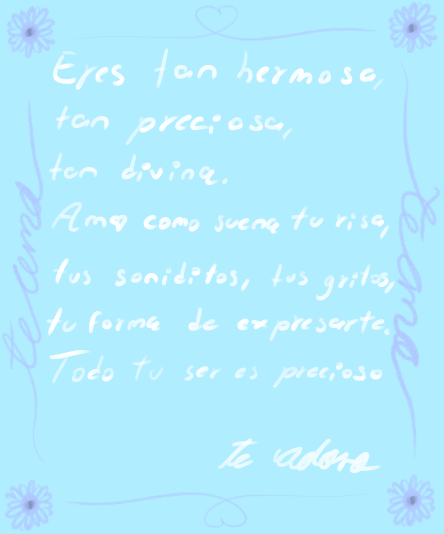 Eres tan hermosa,
tan preciosa,
tan divina.
Amo como suena tu risa,
tus soniditos, tus gritos,
tu forma de expresarte.
Todo tu ser es precioso
te adoro
te amo
te amo